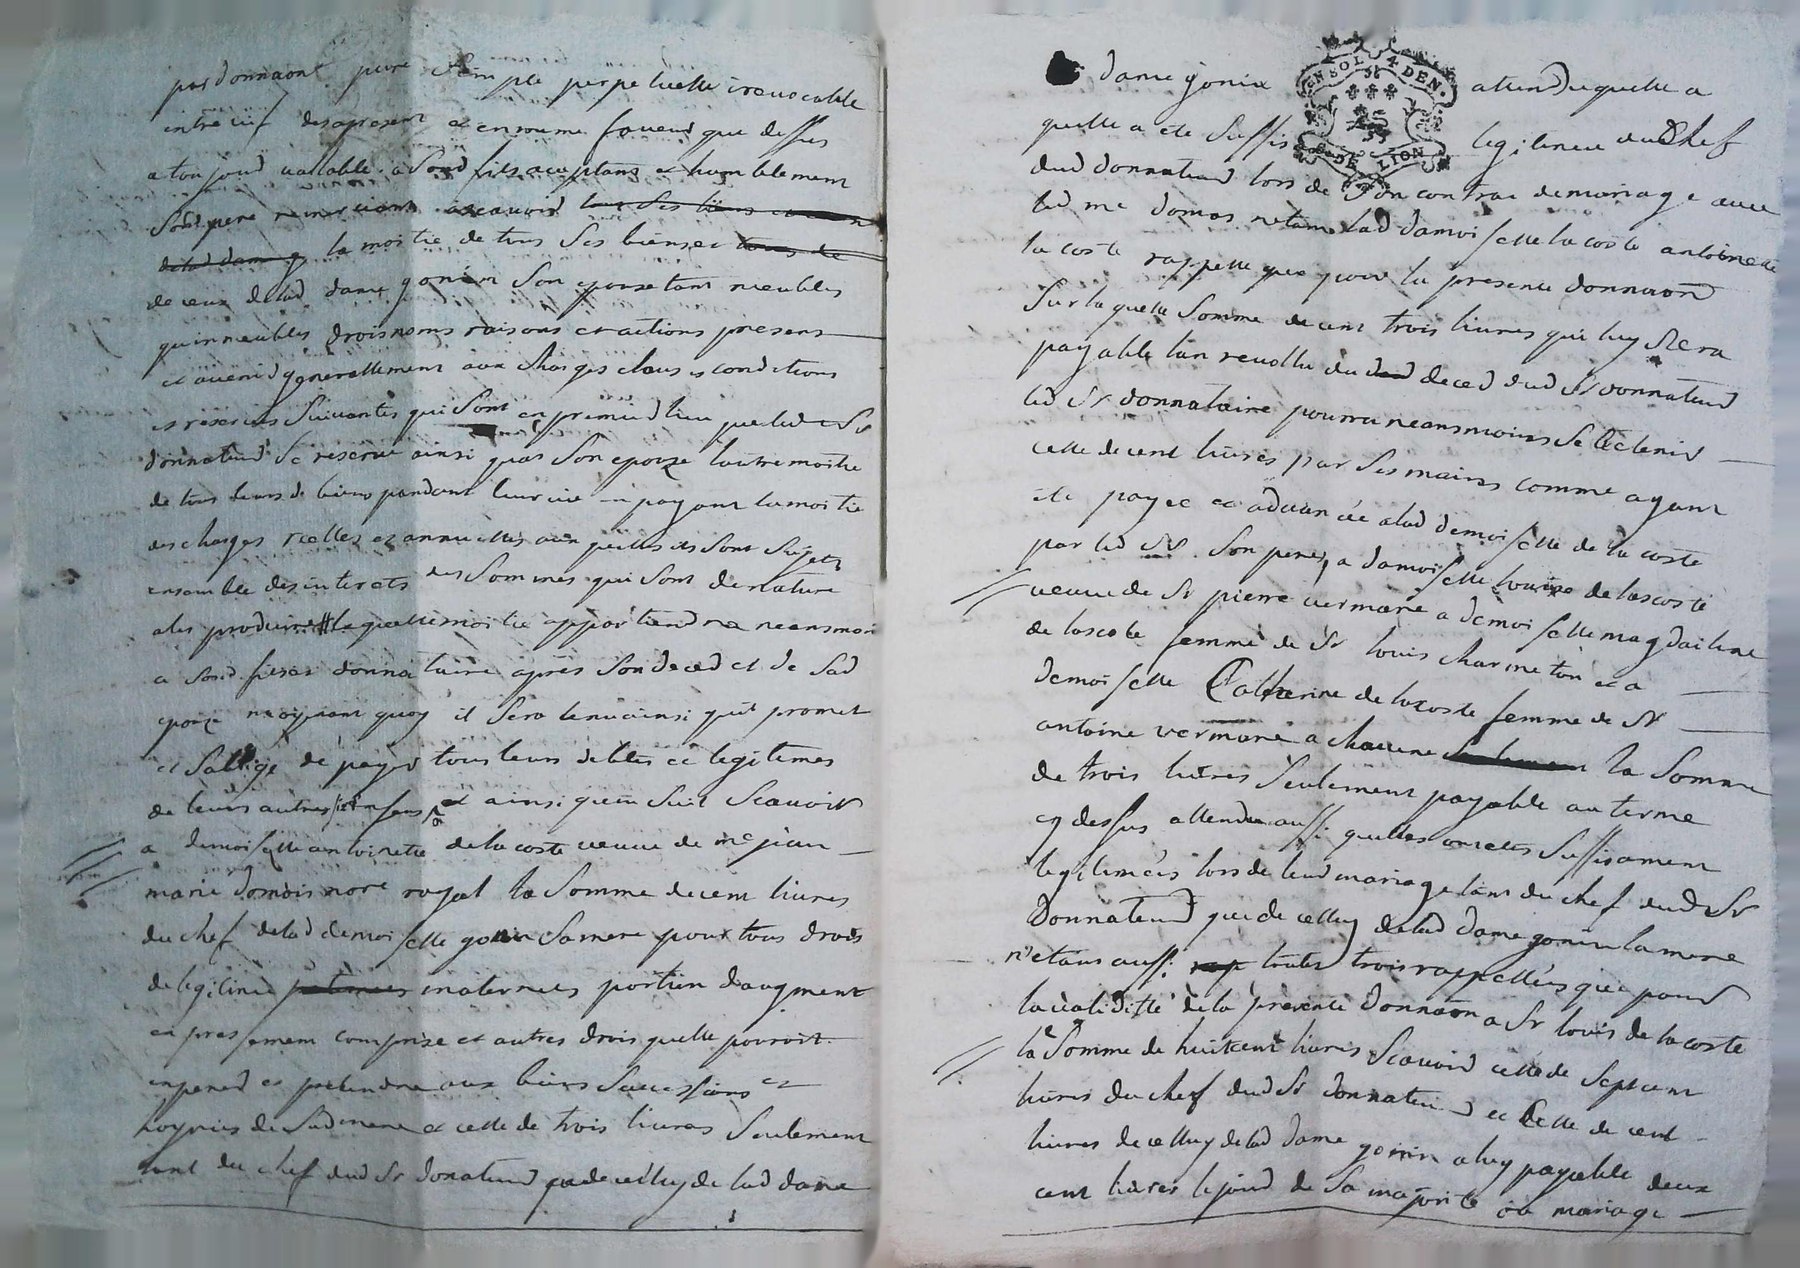 par donnaon pure simple perpetuelle irrevocable
entre vif des apresent et en meme faveur que dessus
a toujours vallable a sond fils acceptant et humblement
sond pere remerciant ascavoir tous ses biens
delad dame g la moitie de tous ses biens et tous de
de ceux delad dame gonin son epouse tant meubles
qu inmeubles drois noms raisons et actions presens
et avenir generallement aux charges clauses conditions
et reserves suivantes qui sont en premier lieu que led Sr
donnateur se reserve ainsi qua son epouze lautre moitie
de tous leursd biens pendant leur vie en payant la moitie
des charges reelles et annuelles aux quelles ils sont sujets
ensemble des interets des sommes qui sont de nature
a les produire la quelle moitie appartiendra neansmoin
a sond fils et donnataire apres son deced et de sad
epouze moyenant quoy il sera tenu ainsi quil promet
et soblige de payer tous leurs debtes et legitimes
de leurs autres enfens et ainsi quen suit scavoir
a demoiselle antoinette de la coste veuve de me jean
marie domois nore royal la somme de cent livres
du chef delad demoiselle gonin sa mere pour tous drois
de legitime maternels portion daugment
en pres ement comprize et autres drois quelle pouroit
esperer et pretendre aux biens successions et
hoyries de sad mere et celle de trois livres seulement
tant du chef dud Sr donateur que de celluy de lad dame
dame gonin attendu quelle a
quelle a ete suffis legitimee du chef
EN SOL 4 DEN.
G. DE LION
dud donnateur lors de son contrat de mariage avec
led me domois netant lad damoiselle lacoste antoinette
la coste rappellee que pour la presente donnaon
sur laquelle somme de cent trois livres qui luy sera
payable lan revollu du deced dud Sr donnateur
led Sr donnataire pourra neansmoins se retenir
celle de cent livres par ses mains comme ayant
ete payee et advancée a lad demoiselle de la coste
par led Sr son pere, a damoiselle louise de lascoste
veuve de Sr pierre vermare a demoiselle magdailene
de lascoste femme de Sr louis charmeton et a
demoiselle Catherine de lacoste femme de Sr
antoine vermare a chacune seulement la somme
de trois livres seulement payable au terme
cy dessus attendu aussi quelles ont etes suffisament
legitimées lors de leur mariage tant du chef dud Sr
Donnateur que de celluy delad dame gonin la mere
n'etans aussi toutes trois rappellées que pour
la validitté de la presente donnaon a Sr louis de lacoste
la somme de huit cent livres scavoir celle de sept cent
livres du chef dud Sr donnateur et celle de cent
livres de celluy delad dame gonin a luy payable deux
cent livres le jour de sa majorite ou mariage